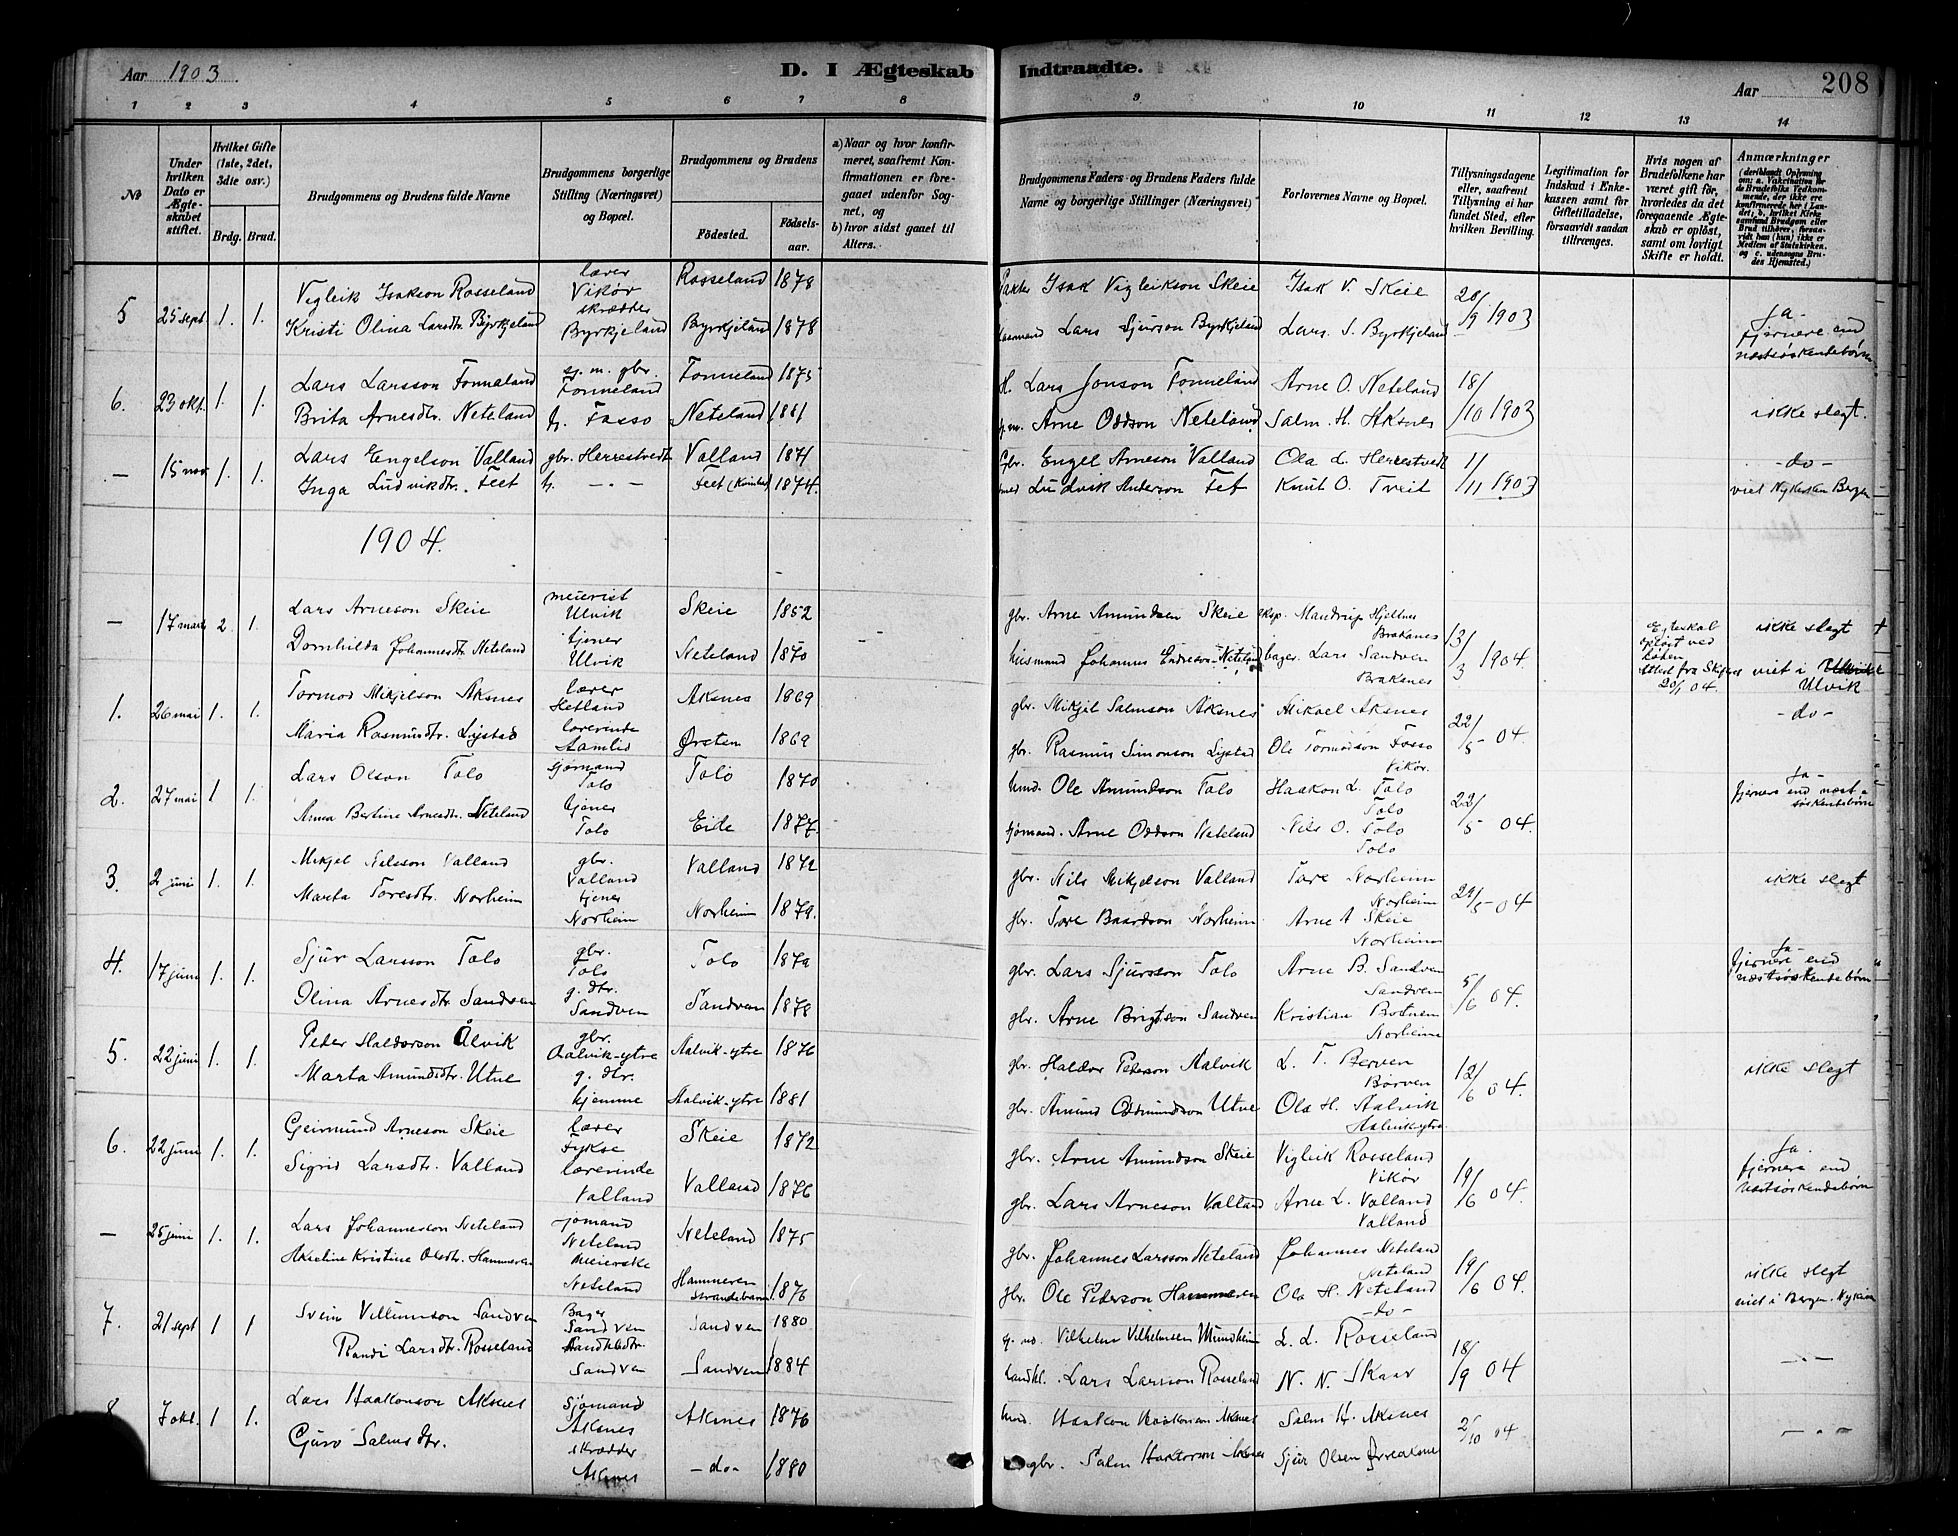 Aar 1903.
D. I Ægteskab Indtraadte.
Aar
208
1 2 3 4 5 6 7 8 9 10 11 12 13 14
№
Under hvilken Dato er Ægteskabet stiftet.
Hvilket Gifte (1ste, 2det, 3die osv.)
Brdg. Brud.
Brudgommens og Brudens fulde Navne
Brudgommens borgerlige Stilling (Næringsvei) og Bopæl.
Brudgommens og Brudens
Födested. Födselsaar.
a) Naar og hvor konfirmeret, saafremt Konfirmationen er foregaaet udenfor Sognet, og
b) hvor sidst gaaet til Alters.
Brudgommens Faders- og Brudens Faders fulde Navne og borgerlige Stillinger (Næringsvei)
Forlovernes Navne og Bopæl.
Tillysningsdagene eller, saafremt Tillysning ei har fundet Sted, efter hvilken Bevilling.
Legitimation for Indskud i Enkekassen samt for Giftetilladelse, forsaavidt saadan tiltrænges.
Hvis nogen af Brudefolkene har været gift før, hvorledes da det foregaaende Ægteskab er oplöst, samt om lovligt Skifte er holdt.
Anmærkninger
5 25 sept. 1. 1. Vigleik Isakson Rosseland lærer Vikör Rosseland 1878 Isak Vigleikson Skeie Isak V. Skeie 20/9 1903
Kristi Olina Larsdtr. Byrkjeland skrædder Byrkjeland Byrkjeland 1878 Lars Sjurson Byrkjeland Lars S. Byrkjeland Ja- fjernere end næstsöskendebörn
6. 23 okt. 1. 1. Lars Larsson Fonneland sj. m. gbr. Fonneland Fonneland 1875 Lars Jonson Fonneland Arne O. Neteland 18/10 1903
Brita Arnesdtr. Neteland h. Fosso Neteland 1881 Arne Oddson Neteland Salm. H. Aksnes ikke slegt.
— 15 nov 1. 1. Lars Engelson Valland gbr. Herrestvedt Valland 1871 Gbr. Engel Arneson Valland Ola L. Herrestvedt 1/11 1903 -do-
Inga Ludvikdtr. Feet h. -.- Feet 1874. Ludvik Anderson Fet Knut O. Tveit viet Nykirken Bergen
1904.
— 17 mars 2. 1. Lars Arneson Skeie meierist Ulvik Skeie 1852 gbr. Arne Amundsen Skeie eksp. Mandrup Hjeltnes Brakanes 13/3 1904. Egteskab oplöst ved döden. Attest fra Skifteret 20/1 04. ikke slegt
Dornhilda Johannesdtr. Neteland tjener Ulvik Neteland 1870 husmand Johannes Endreson Neteland bager Lars Sandven Brakanes viet i Ulvik
1. 26 mai 1. 1. Tormod Mikjelson Aksnes lærer Hetland Aksnes 1869 gbr. Mikjel Salmson Aksnes Mikael Aksnes 22/5 04. -do-
Maria Rasmusdtr. Lystad lærerinde Aamlid Örsten 1869 gbr. Rasmus Simonson Lystad Ole Tormodson Fosso Vikör.
2. 27 mai 1 1. Lars Olson Tolo sjömand Tolo Tolo 1870 Ole Amundson Tolo Haakon L. Tolo Tolo 22/5 04. Ja- fjernere end næstsöskendebörn
Anna Bertine Arnesdtr. Neteland tjener Tolo Eide 1877. sjömand. Arne Oddson Neteland Nils O. Tolo Tolo
3. 2 juni 1. 1. Mikjel Nilsson Valland gbr. Valland Valland 1872 gbr. Nils Mikjelson Valland Tore Norheim Norheim 29/5 04 ikke slegt
Marta Toresdtr. Norheim tjener Norheim Norheim 1879. gbr. Tore Baardson Norheim Arne A Skeie Norheim
4. 17 juni 1. 1. Sjur Larsson Tolo gbr. Tolo Tolo 1879 gbr. Lars Sjursson Tolo Arne B. Sandven Sandven 5/6 04. Ja- fjernere end næstsöskendebörn
Olina Arnesdtr. Sandven g. dtr. Sandven Sandven 1878 gbr. Arne Brigtson Sandven Kristian Botnen Norheim
5. 22 juni 1. 1. Peder Haldorson Ålvik gbr. Aalvik-ytre Aalvik-ytre 1876 gbr. Haldor Peterson Aalvik L. T. Berven Börven 12/6 04. ikke slegt
Marta Amundsdtr. Utne g. dtr. hjemme Aalvik-ytre 1881 gbr. Amund Odmundson Utne Ola H. Aalvik Aalvik-ytre
6. 22 juni 1. 1. Geirmund Arneson Skeie lærer Fykse Skeie 1872 gbr. Arne Amundson Skeie Vigleik Rosseland Vikör 19/6 04. Ja. fjernere end næstsöskendebörn
Sigrid Larsdtr. Valland lærerinde Valland Valland 1876 gbr. Lars Arneson Valland Arne L. Valland Valland
— 25 juni 1. 1. Lars Johanneson Neteland sjömand Neteland Neteland 1875 gbr. Johannes Larsson Neteland Johannes Neteland Neteland 19/6 04. ikke slegt
Kristine Olesdtr. Hammeren meierske Neteland Hammeren Strandebarm 1876 gbr. Ole Pederson Hammeren Ola H. Neteland -do- viet i Bergen.
7. 21 sept 1 1 Svein Villumson Sandven Bager Sandven Sandven 1880 Vilhelm Vilhelmsen Mundheim L. L. Rosseland 18/9 04 -.-
Randi Larsdtr. Rosseland Sandven Sandven 1884 handl. Lars Larsson Rosseland N. N. Skaar
8 7 okt. 1 1. Lars Haakonson Aksnes Sjömand Aksnes Aksnes 1876 Haakon Haakonson Aksnes Salm H. Aksnes 2/10 04 -.-
Guro Salmsdtr. skrædder Aksnes -do- 1880 gbr. Salm Haakonson Aksnes Sjur Olsen